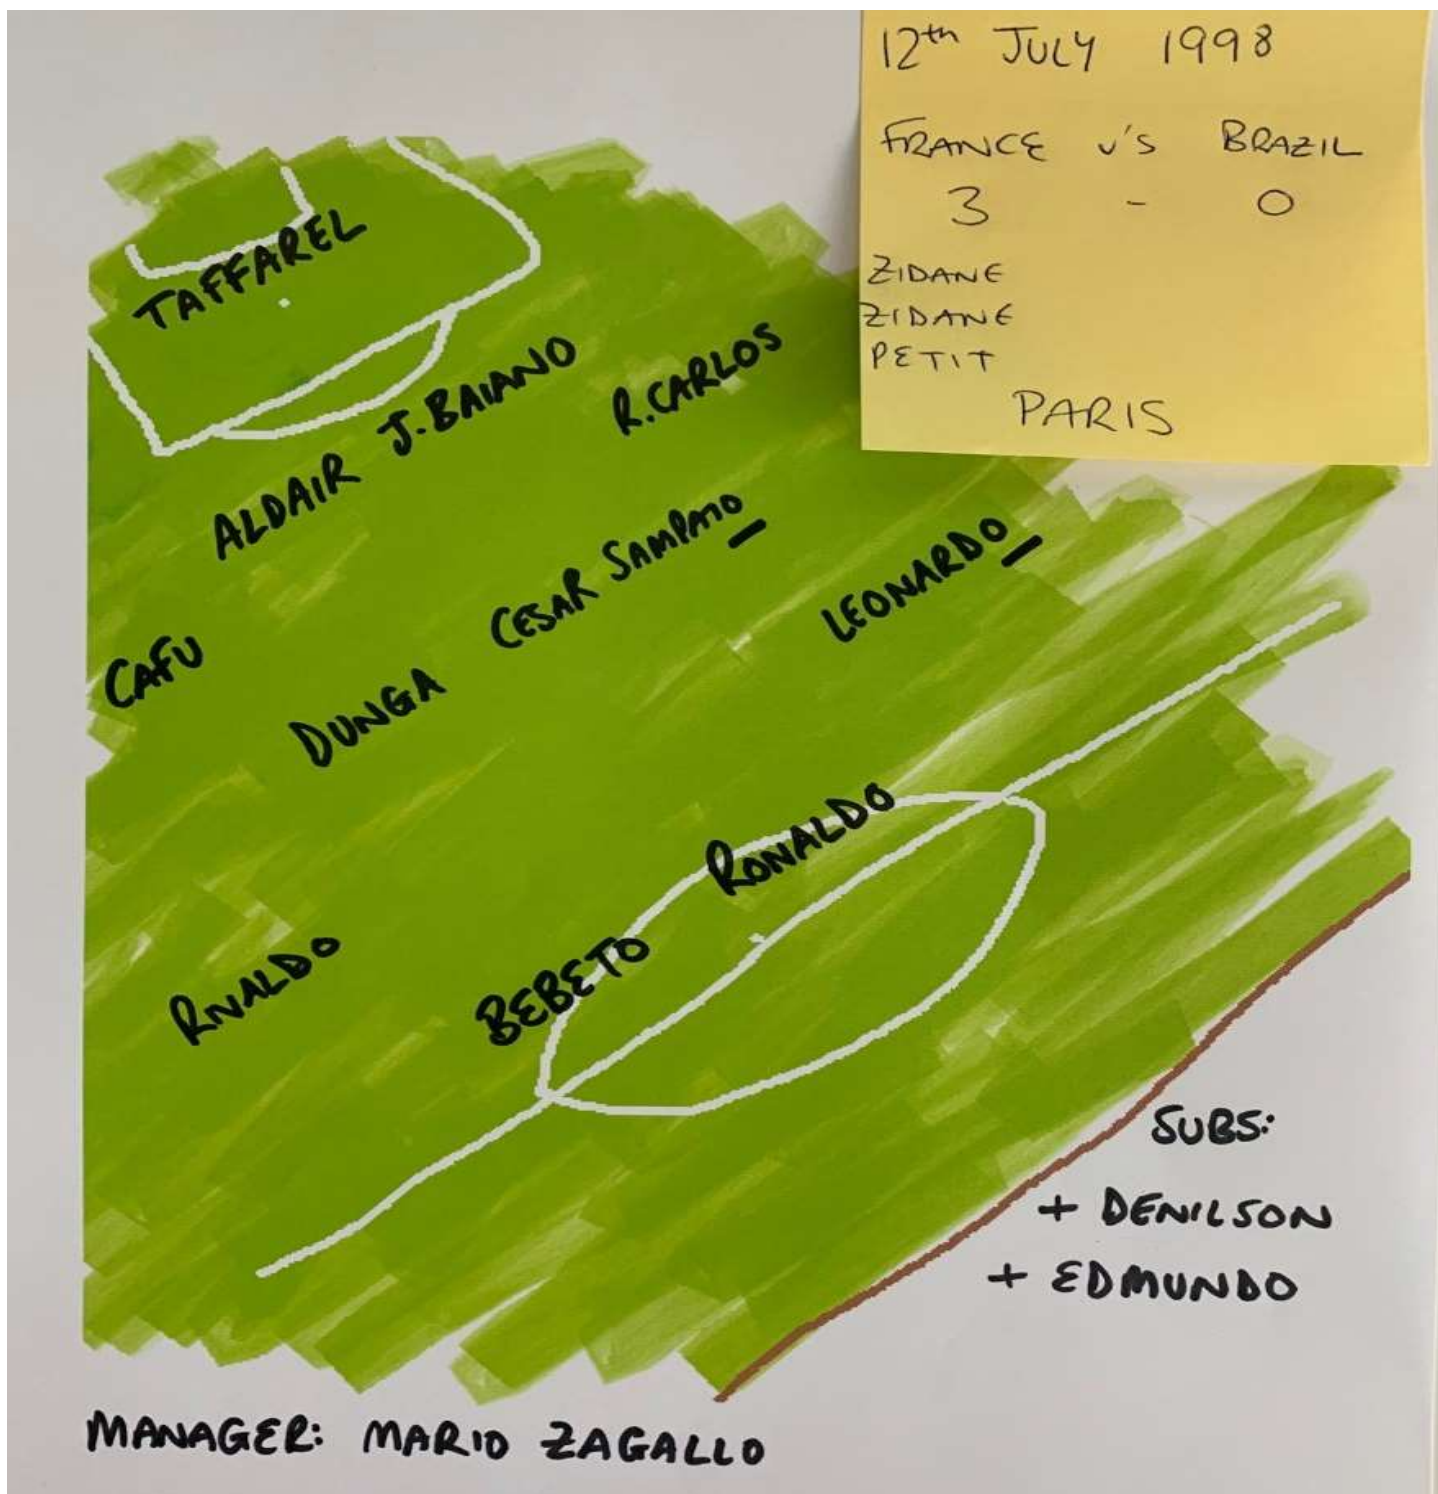 12th JULY 1998
FRANCE V'S BRAZIL
3 - 0
ZIDANE
ZIDANE
PETIT
PARIS
TAFFAREL
ALDAIR
J. BAIANO
R. CARLOS
CAFU
DUNGA
CESAR SAMPAIO
LEONARDO
RIVALDO
BEBETO
RONALDO
SUBS:
+ DENILSON
+ EDMUNDO
MANAGER: MARIO ZAGALLO